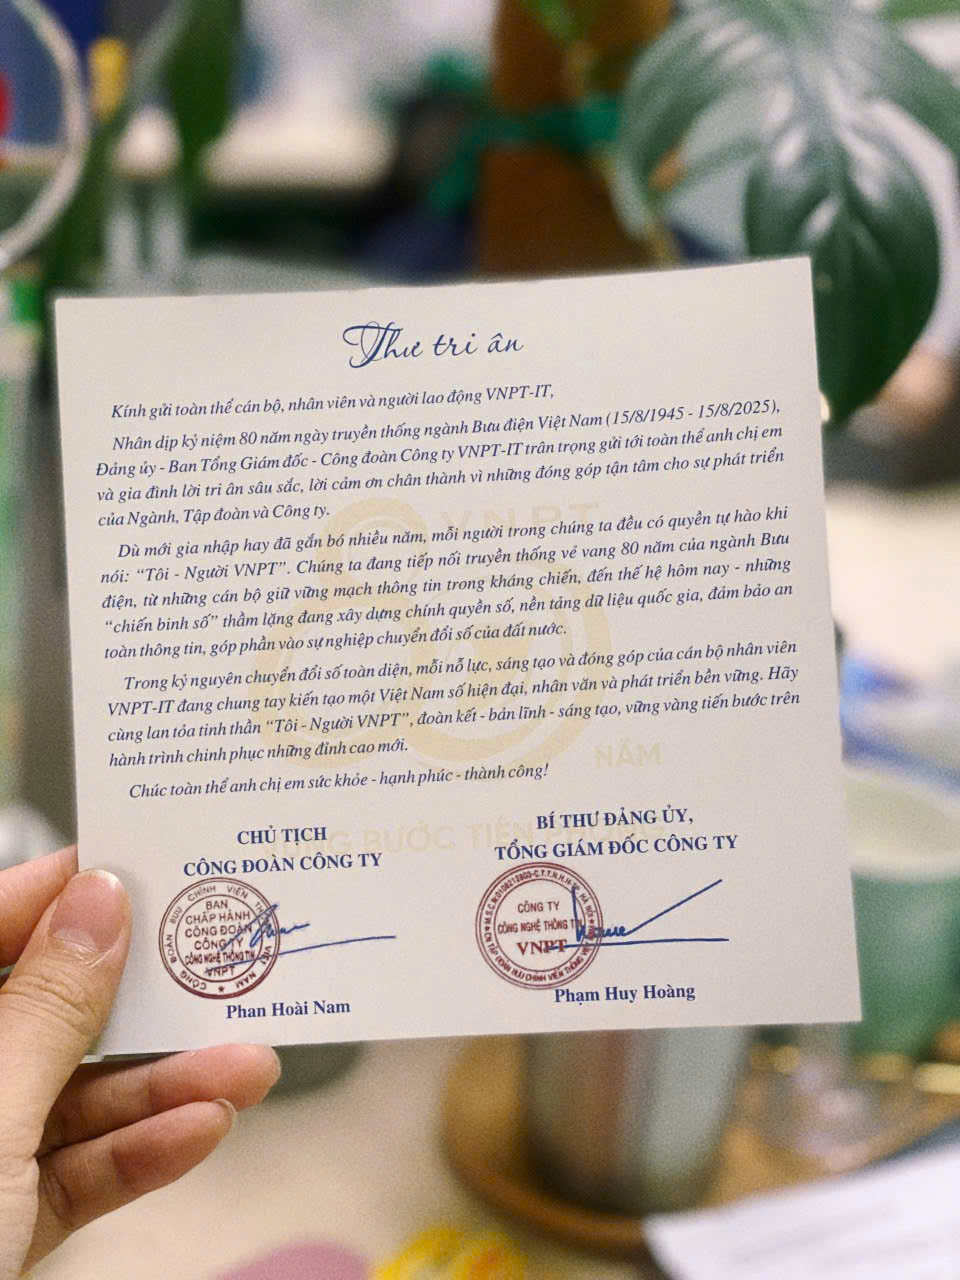 Thư tri ân
Kính gửi toàn thể cán bộ, nhân viên và người lao động VNPT-IT,
Nhân dịp kỷ niệm 80 năm ngày truyền thống ngành Bưu điện Việt Nam (15/8/1945 - 15/8/2025),
Đảng ủy - Ban Tổng Giám đốc - Công đoàn Công ty VNPT-IT trân trọng gửi tới toàn thể anh chị em
và gia đình lời tri ân sâu sắc, lời cảm ơn chân thành vì những đóng góp tận tâm cho sự phát triển
của Ngành, Tập đoàn và Công ty.
Dù mới gia nhập hay đã gắn bó nhiều năm, mỗi người trong chúng ta đều có quyền tự hào khi
nói: “Tôi - Người VNPT”. Chúng ta đang tiếp nối truyền thống vẻ vang 80 năm của ngành Bưu
điện, từ những cán bộ giữ vững mạch thông tin trong kháng chiến, đến thế hệ hôm nay - những
“chiến binh số” thầm lặng đang xây dựng chính quyền số, nền tảng dữ liệu quốc gia, đảm bảo an
toàn thông tin, góp phần vào sự nghiệp chuyển đổi số của đất nước.
Trong kỷ nguyên chuyển đổi số toàn diện, mỗi nỗ lực, sáng tạo và đóng góp của cán bộ nhân viên
VNPT-IT đang chung tay kiến tạo một Việt Nam số hiện đại, nhân văn và phát triển bền vững. Hãy
cùng lan tỏa tinh thần “Tôi - Người VNPT”, đoàn kết - bản lĩnh - sáng tạo, vững vàng tiến bước trên
hành trình chinh phục những đỉnh cao mới.
Chúc toàn thể anh chị em sức khỏe - hạnh phúc - thành công!
VNPT
80
NĂM
BƯỚC TIÊN PHONG
CHỦ TỊCH
CÔNG ĐOÀN CÔNG TY
BAN
CHẤP HÀNH
CÔNG ĐOÀN
CÔNG TY
CÔNG NGHỆ THÔNG TIN
VNPT
Phan Hoài Nam
BÍ THƯ ĐẢNG ỦY,
TỔNG GIÁM ĐỐC CÔNG TY
CÔNG TY
CÔNG NGHỆ THÔNG
VNPT
Phạm Huy Hoàng